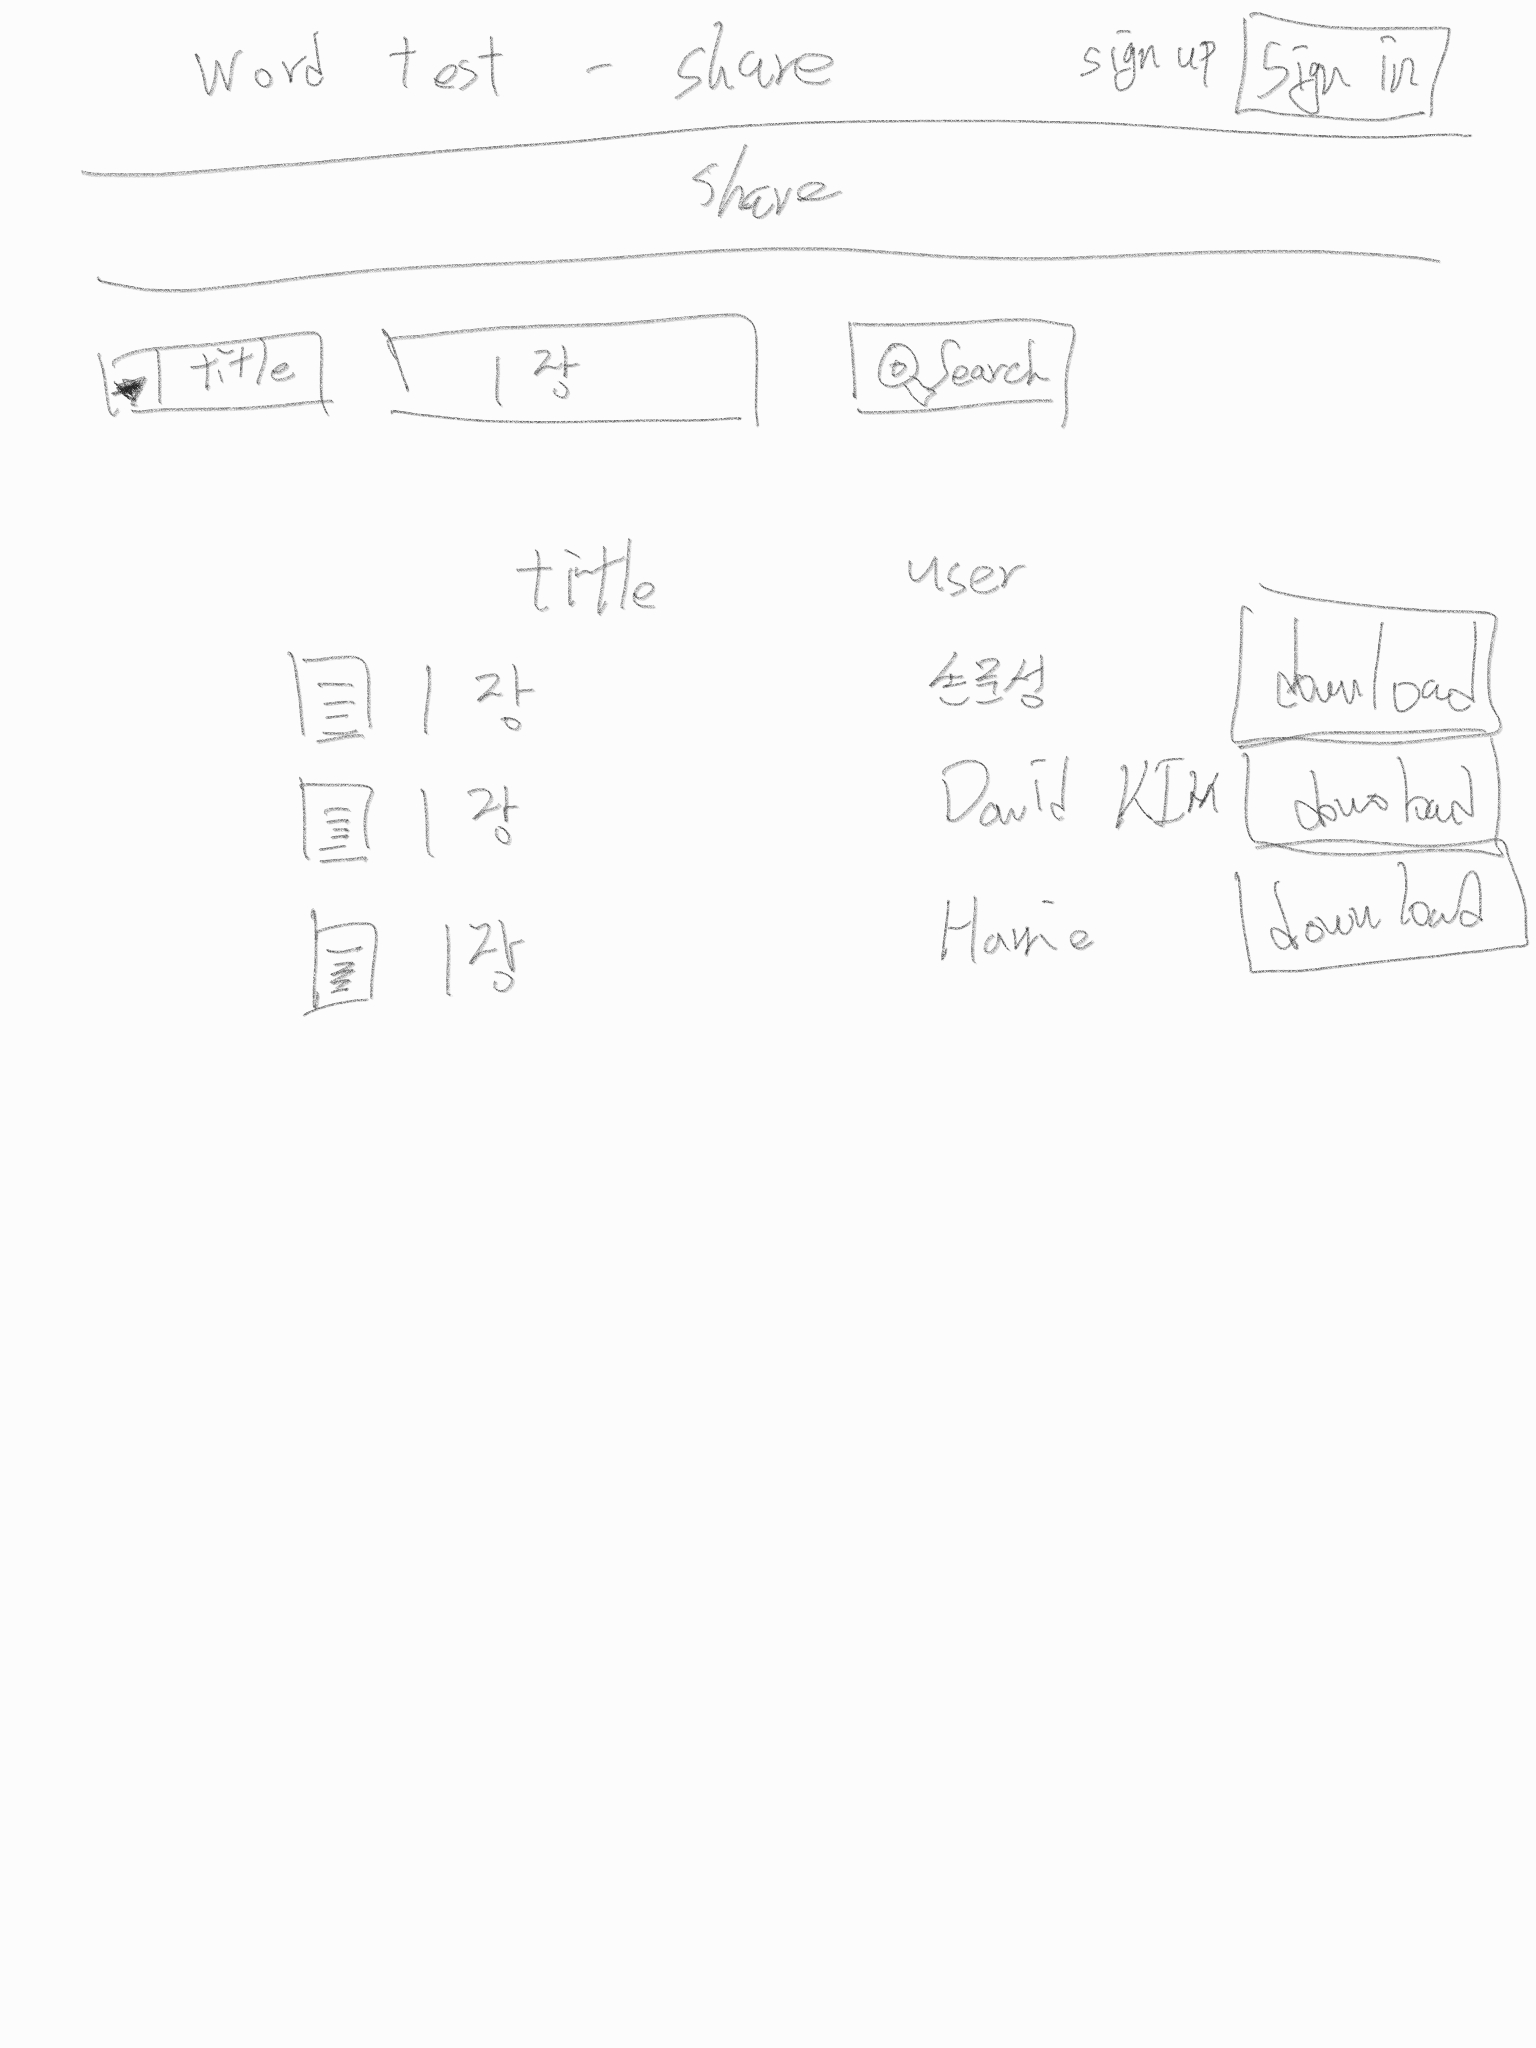 Word test - share sign up Sign in
share
title 1 장 Search
title user
1 장 download
1 장 David KIM download
1 장 download